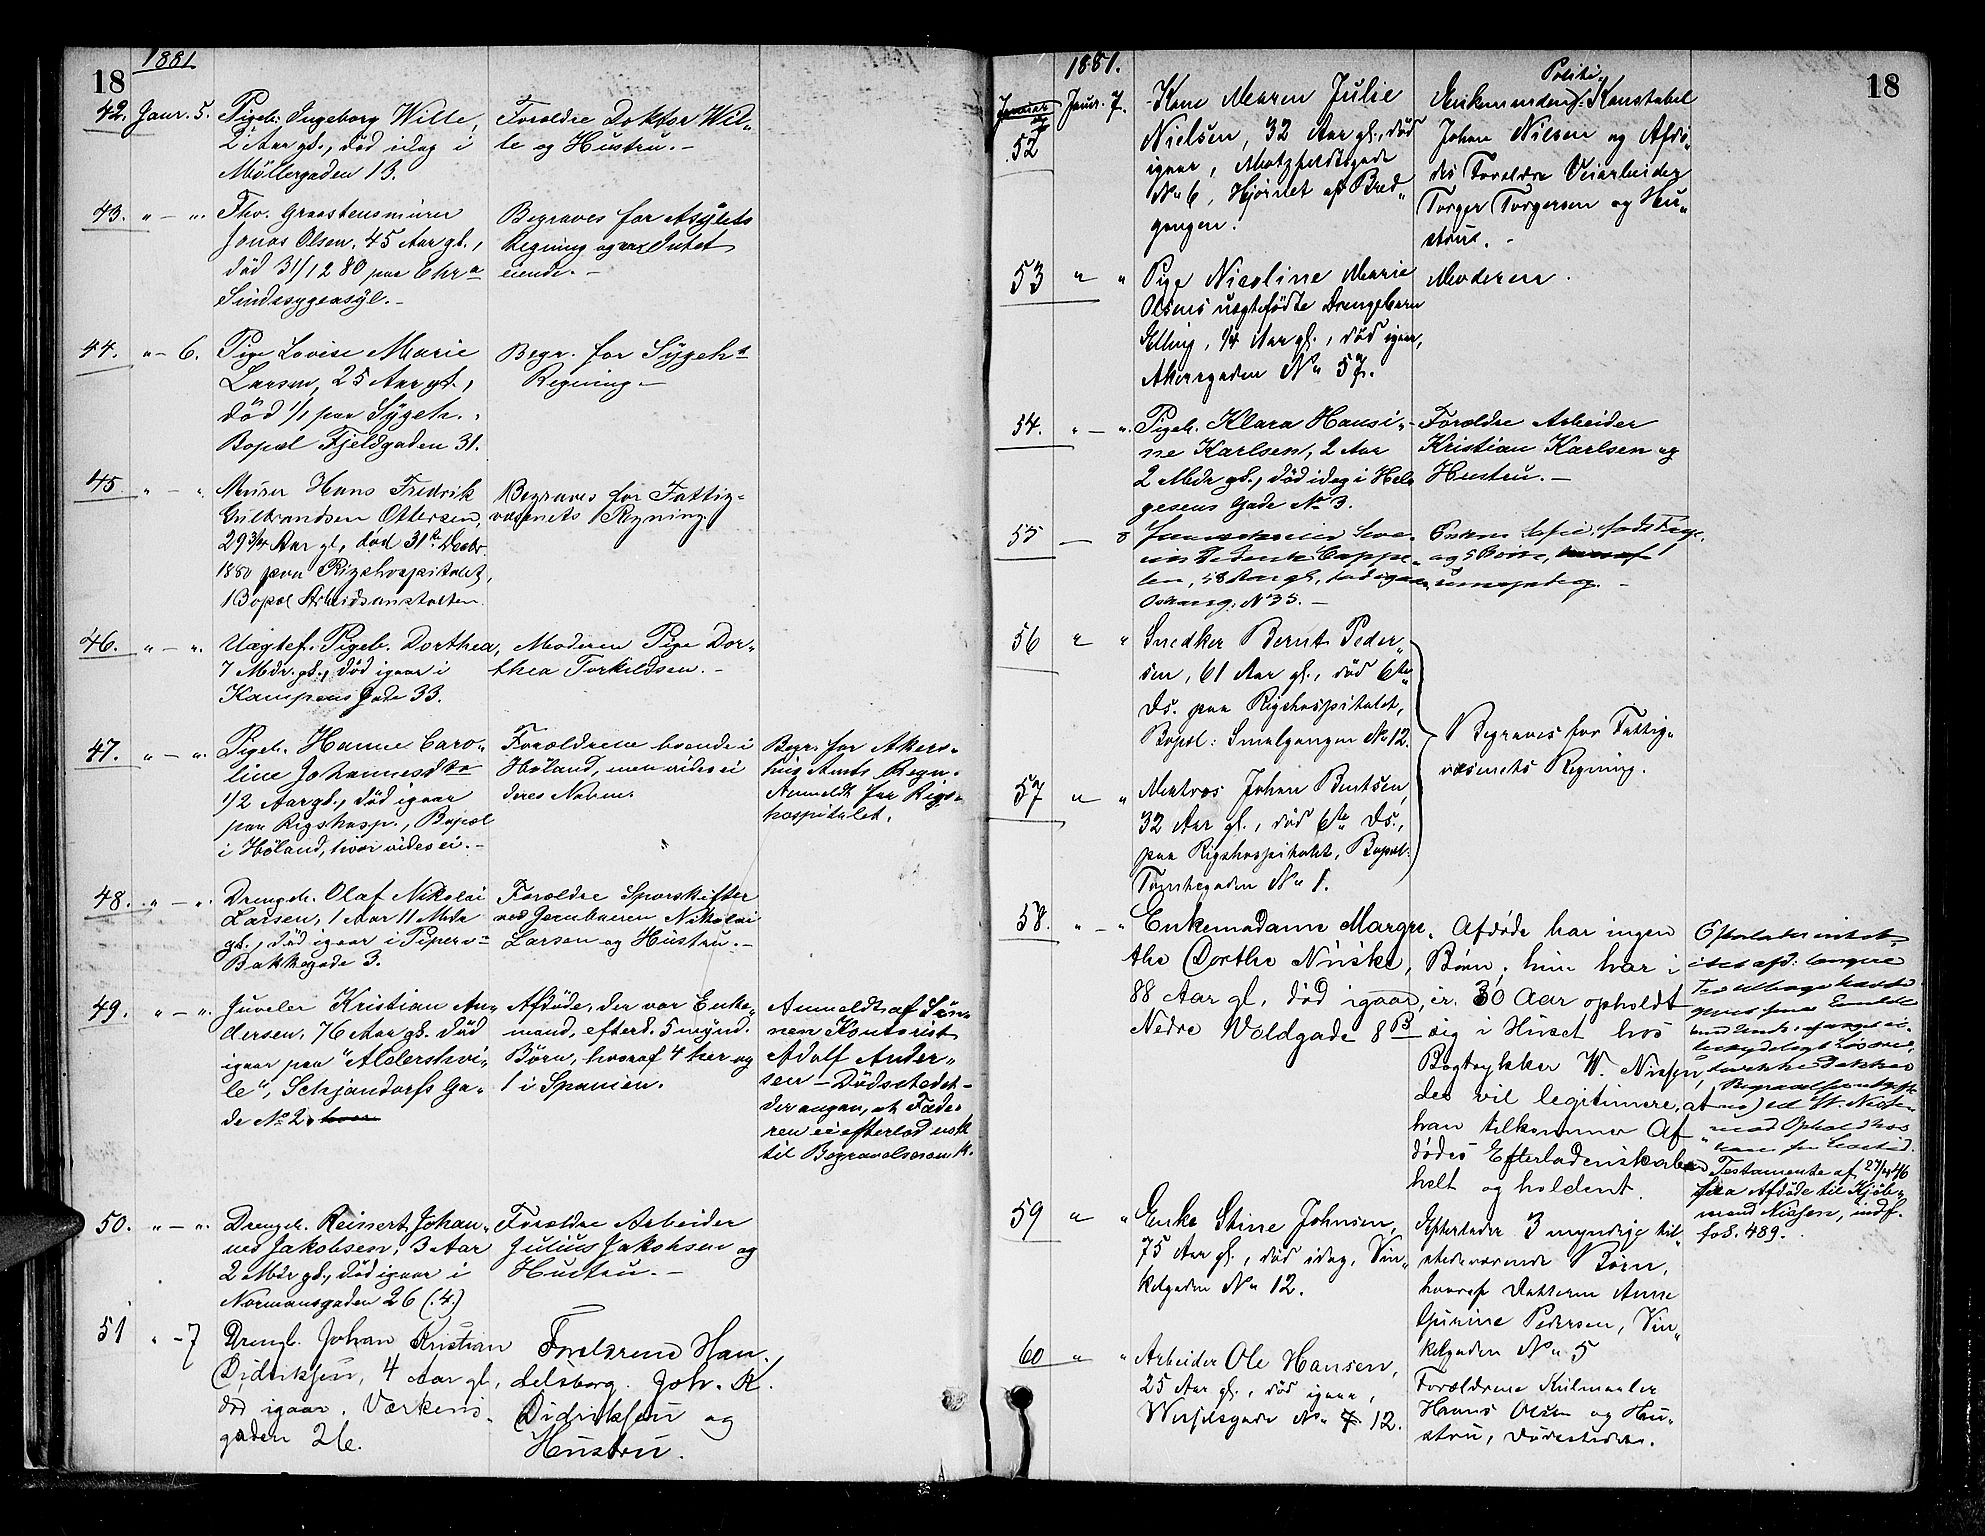 18
1881
42. Janr. 5. Pigeb. Ingeborg Wille,
2 Aar gl., död idag i
Möllergaden 13.
Forældre Doktor Wil-
le og Hustru. -
43. " - ". Fhv. Graastensmurer
Jonas Olsen, 45 Aar gl.,
död 31/12 80 paa Chra
Sindssygeasyl. -
Begraves for Asylets
Regning og var Intet
eiende. -
44. " - 6. Pige Lovise Marie
Larsen, 25 Aar gl.,
död 1/1 paa Sygeh.
Bopæl Fjeldgaden 31.
Begr. for Sygeh's
Regning -
45. " - ". Murer Hans Fredrik
Gulbrandsen Ottersen,
29 3/4 Aar gl, död 31te Decbr
1880 paa Rigshospitalet,
Bopæl Arbeidsanstalten.
Begraves for Fattig-
væsenets Regning.
46. " - ". Uægtef. Pigeb. Dorthea,
7 Mdr. gl., död igaar i
Kampens Gade 33.
Moderen Pige Dor-
thea Torkildsen. -
47. " - ". Pigeb. Hanne Caro-
line Johannesdtr
1/2 Aar gl., död igaar
paa Rigshosp., Bopæl
i Höland, hvor vides ei. -
Forældrene boende i
Höland, men vides ei
deres Navne.
Begr. for Akers-
hus Amts Regn.
Anmeldt fra Rigs-
hospitalet.
48. " - ". Drengeb. Olaf Nikolai
Larsen, 1 Aar 11 Mdr
gl., död igaar i Pipervi-
Bakkegade 3.
Forældre Sporskifter
ved Jernbanen Nikolai
Larsen og Hustru. -
49. " - ". Juveler Kristian An-
dersen, 76 Aar gl. död
igaar paa "Aldershvi-
le", Schjandorfs Ga-
de No 2
Afdöde, der var Enke-
mand, efterl. 5 mynd.
Börn, hvoraf 4 her og
1 i Spanien.
Anmeldt af Sön-
nen Kontorist
Adolf Ander-
sen - Dödsstedet -
der angav, at Fade-
ren ei efterlod nok
til Begravelsesomk.
50. " - ". Drengeb. Reinert Johan-
nes Jakobsen, 3 Aar
2 Mdr gl., död igaar i
Normansgaden 26 (.4.)
Forældre Arbeider
Julius Jakobsen og
Hustru. -
51 " - 7 Drengb. Johan Kristian
Didriksen, 4 Aar gl,
död igaar. Værkens-
gaden 26.
Forældrene Han-
delsborg. Joh. K.
Didriksen og
Hustru.
18
1881.
52 Janr. 7. Kone Maren Julie
Nielsen, 32 Aar gl., död
igaar, Motzfeldtsgade
No 6, Hjörnet af Bred-
gangen.
Enkemanden Politi-Konstabel
Johan Nilsen og Afdö-
des Forældre Veiarbeider
Torger Torgersen og Hu-
stru. -
53 " " Pige Nicoline Marie
Olsens uægtefödte Drengebarn
Elling, 1/4 Aar gl., död igaar,
Akersgaden No 57.
Moderen.
54. " - ". Pigeb. Klara Hansi-
ne Karlsen, 2 Aar
2 Mdr gl., död idag i Hel-
gesens Gade No 3.
Forældre Arbeider
Kristian Karlsen og
Hustru. -
55 — 8
Cappe-
len, 58 Aar gl., död igaar
Oscarsg. No 35. -
Enken Sofie, födt
og 5 Börn, 1
umyndig. -
56 " " Snedker Bernt Peder-
sen, 61 Aar gl., död 6te
Ds. paa Rigshospitalet,
Bopæl: Smalgangen No 12.
57 " " Matros Johan Bentsen,
32 Aar gl., död 6te Ds.,
paa Rigshospitalet, Bopæl:
Tomtegaden No 1.
Begraves for Fattig-
væsenets Regning.
58. " - " Enkemadame Margre-
the Dorthe Niiske,
88 Aar gl, död igaar,
Nedre Voldgade 8 B
Afdöde har ingen
Börn; hun har i
ir. 30 Aar opholdt
sig i Huset hos
Bogtrykker W. Nissen,
der vil legitimere, at
han tilkommer Af-
dödes Efterladenskaber
helt og holdent.
Testamente af 27/
fra Afdöde til Kjöb-
mand Nissen, indf.
fol. 489.
59 " " Enke Stine Johnsen,
75 Aar gl., död idag, Vin-
kelgaden No 12.
Efterlader 3 myndige til-
stedeværende Börn,
hvoraf Datteren Anne
Gurine Pedersen, Vin-
kelgaden No 5
60 " " Arbeider Ole Hansen,
25 Aar gl., död igaar,
Wessels gade No 12.
Forældrene Kulmaaler
Hans Olsen og Hu-
stru, Dödsstedet.